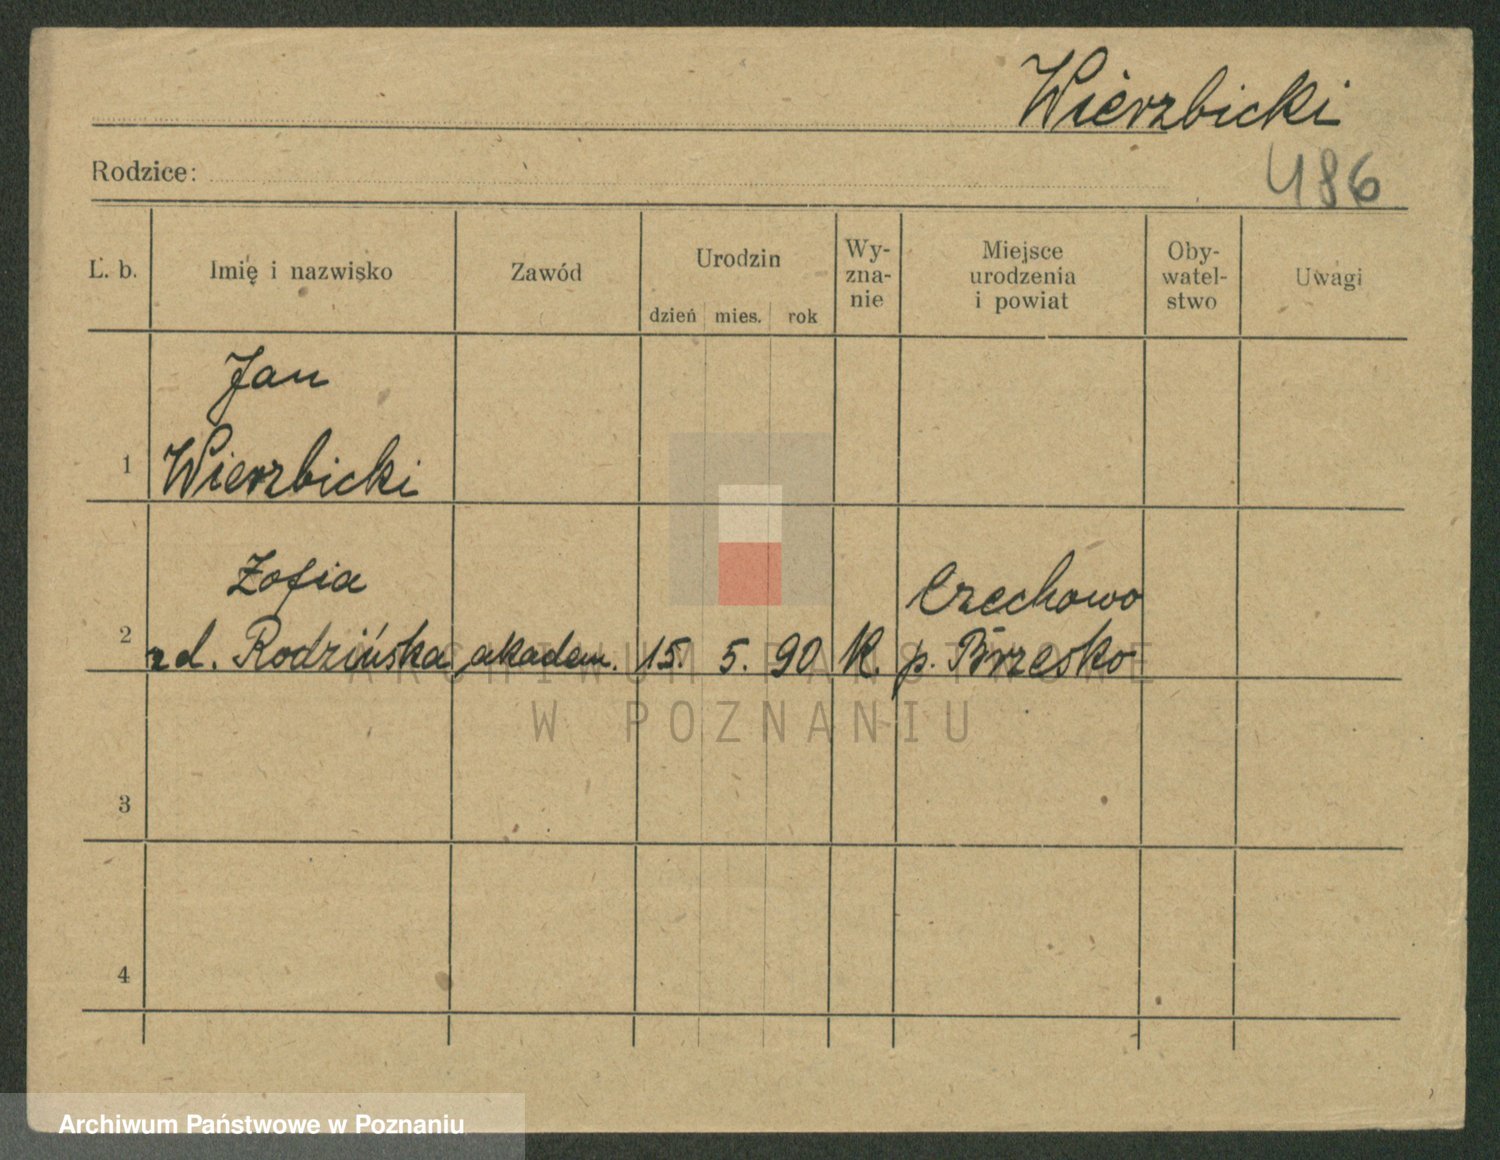 Wierzbicki
Rodzice:
486
L. b.
Imię i nazwisko
Zawód
Urodzin
dzień mies. rok
Wy-
zna-
nie
Miejsce
urodzenia
i powiat
Oby-
watel-
stwo
Uwagi
Jan
1 Wierzbicki
Zofia
Czechowo
2 zd. Rodzińska akadem. 15. 5. 90 K. p. Brzesko
3
4
ARCHIWUM PAŃSTWOWE
W POZNANIU
Archiwum Państwowe w Poznaniu